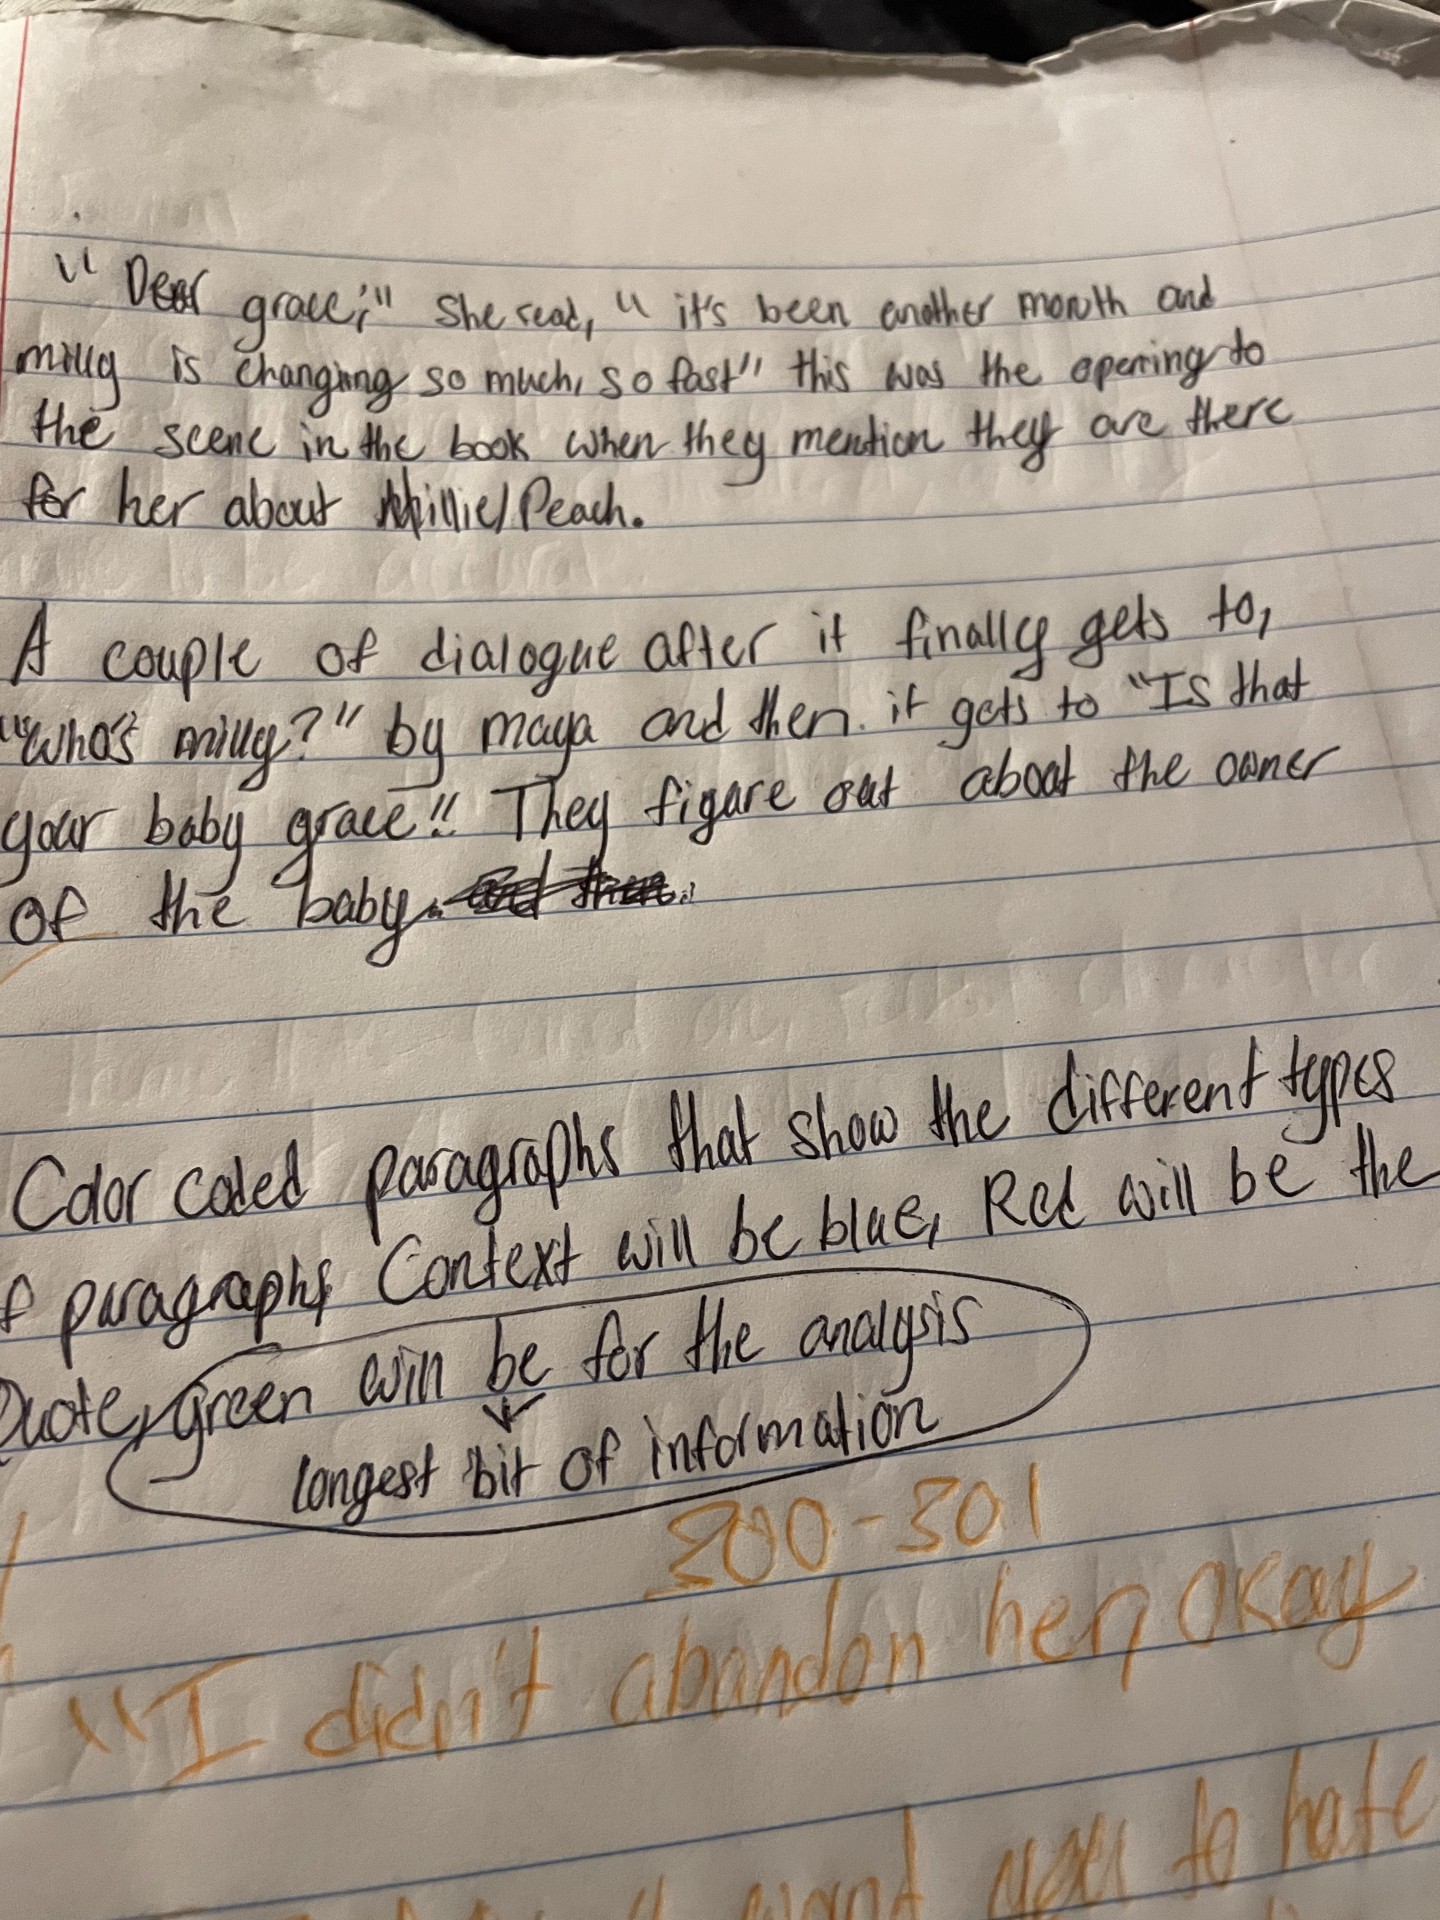 "Dear grace," she read, "it's been another month and
milly is changing so much, so fast" this was the opening to
the scene in the book when they mention they are there
for her about Millie/Peach.
A couple of dialogue after it finally gets to,
"Who's milly?" by maya and then it gets to "Is that
your baby grace!! They figure out about the owner
of the baby.
Color coded paragraphs that show the different types
f paragraphs Context will be blue, Red will be the
Quote, green will be for the analysis
longest bit of information
300-301
"I didn't abandon her, okay
want you to hate